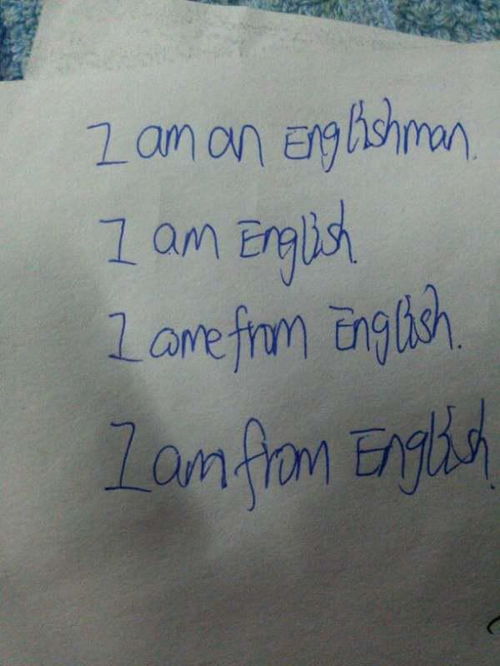 I am an Englishman.
I am English.
I come from English.
I am from English.